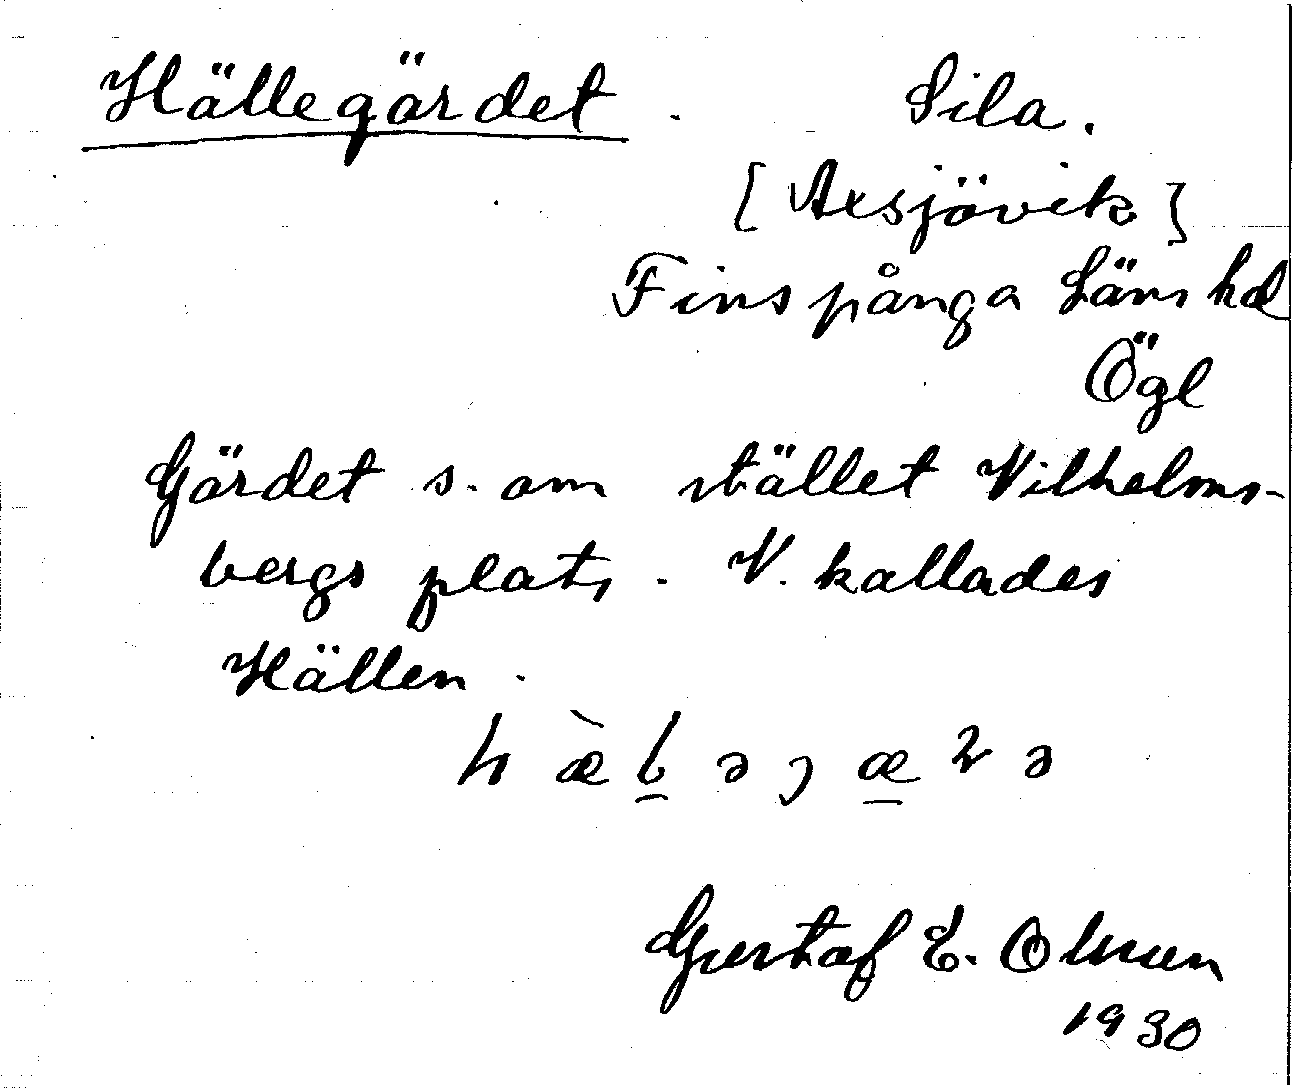 Hällegärdet. Sila.
[Axsjövik]
Finspånga Läns hd
Ögl
Gärdet s. om stället Vilhelms-
bergs plats. V. kallades
Hällen.
Gustaf E. Olsson
1930